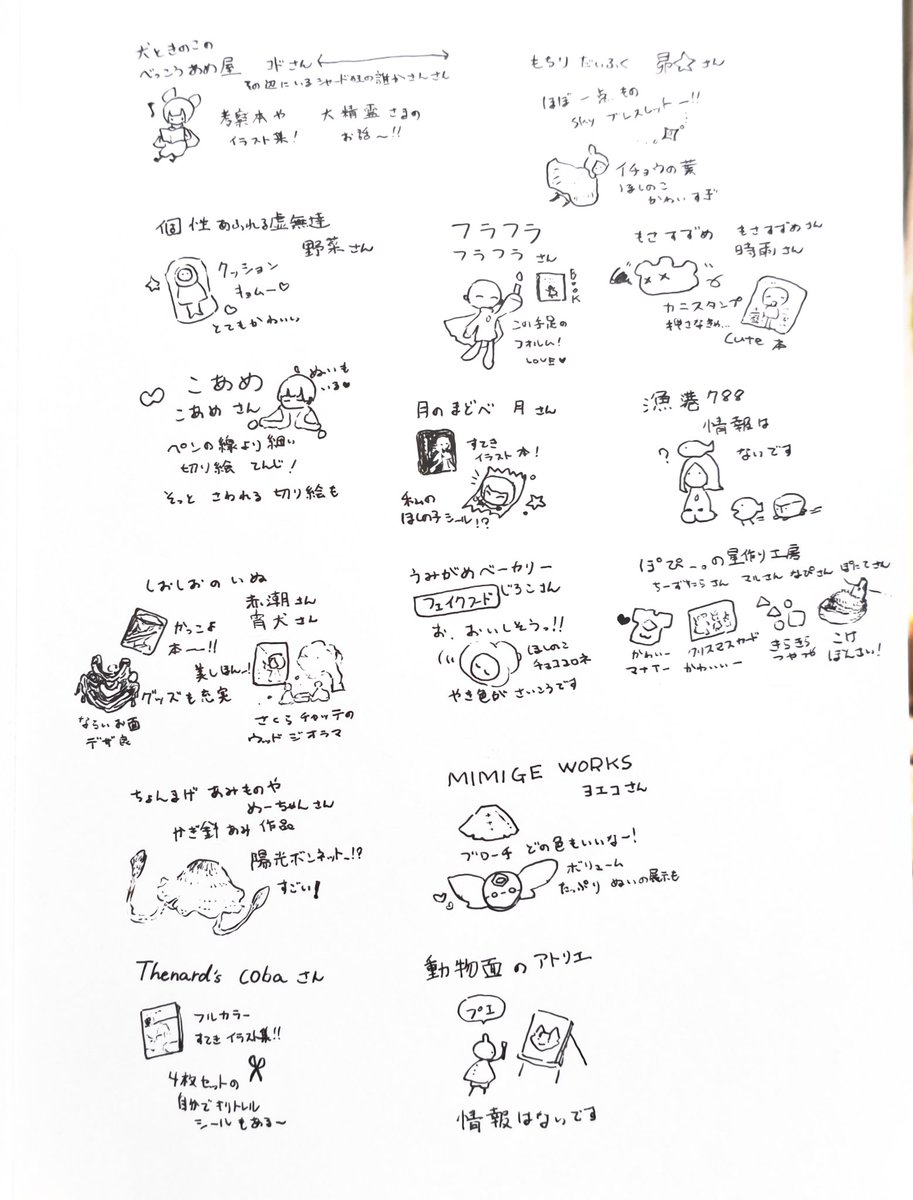 犬ときのこの
べっこうあめ屋 コドさん
その辺にいるシャード狂の誰かさんさん
考察本や
イラスト集!
大精霊さまの
お話〜!!
もちり だいふく 昴☆さん
ほぼ一点もの
sky ブレスレットー!!
イチョウの葉
ほしのこ
かわいすぎ
個性あふれる虚無達
野菜さん
クッション
キョムー♡
とてもかわいい
フラフラ
フラフラ さん
BOOK
この手足の
フォルム!
LOVE♥
もさすずめ もさすずめさん
時雨さん
カニスタンプ
押さなきゃ...
Cute 本
こあめ
こあめ さん
ぬいも
いる♥
ペンの線より細い
切り絵 てんじ!
そっと さわれる 切り絵も
月のまどべ 月さん
すてき
イラスト本!
私の
ほしの子シール!?
漁港788
情報は
ないです
?
しおしおのいぬ
赤潮さん
宵犬さん
かっこよ
本〜!!
美しほん!
グッズも充実
ならいお面
デザ良
さくらチャッテの
ウッド ジオラマ
うみがめベーカリー
フェイクフード じろこさん
お、おいしそうっ!!
ほしのこ
チョココロネ
やき色が さいこうです
ぽぴー。の星作り工房
ちーずたらさん マルさん なぴさん ぽてさん
かわいー
マナティー
クリスマスカード
かわいいー
きらきら
つやつや
こけ
ぼんさい!
ちょんまげ あみものや
めーちゃんさん
かぎ針あみ 作品
陽光ボンネットー!?
すごい!
MIMIGE WORKS
ヨエコさん
ブローチ どの色もいいなー!
ボリューム
たっぷり ぬいの展示も
Thenard's coba さん
フルカラー
すてき イラスト集!!
4枚セットの
自分でキリトレル
シールもある〜
動物面のアトリエ
プエ
情報はないです